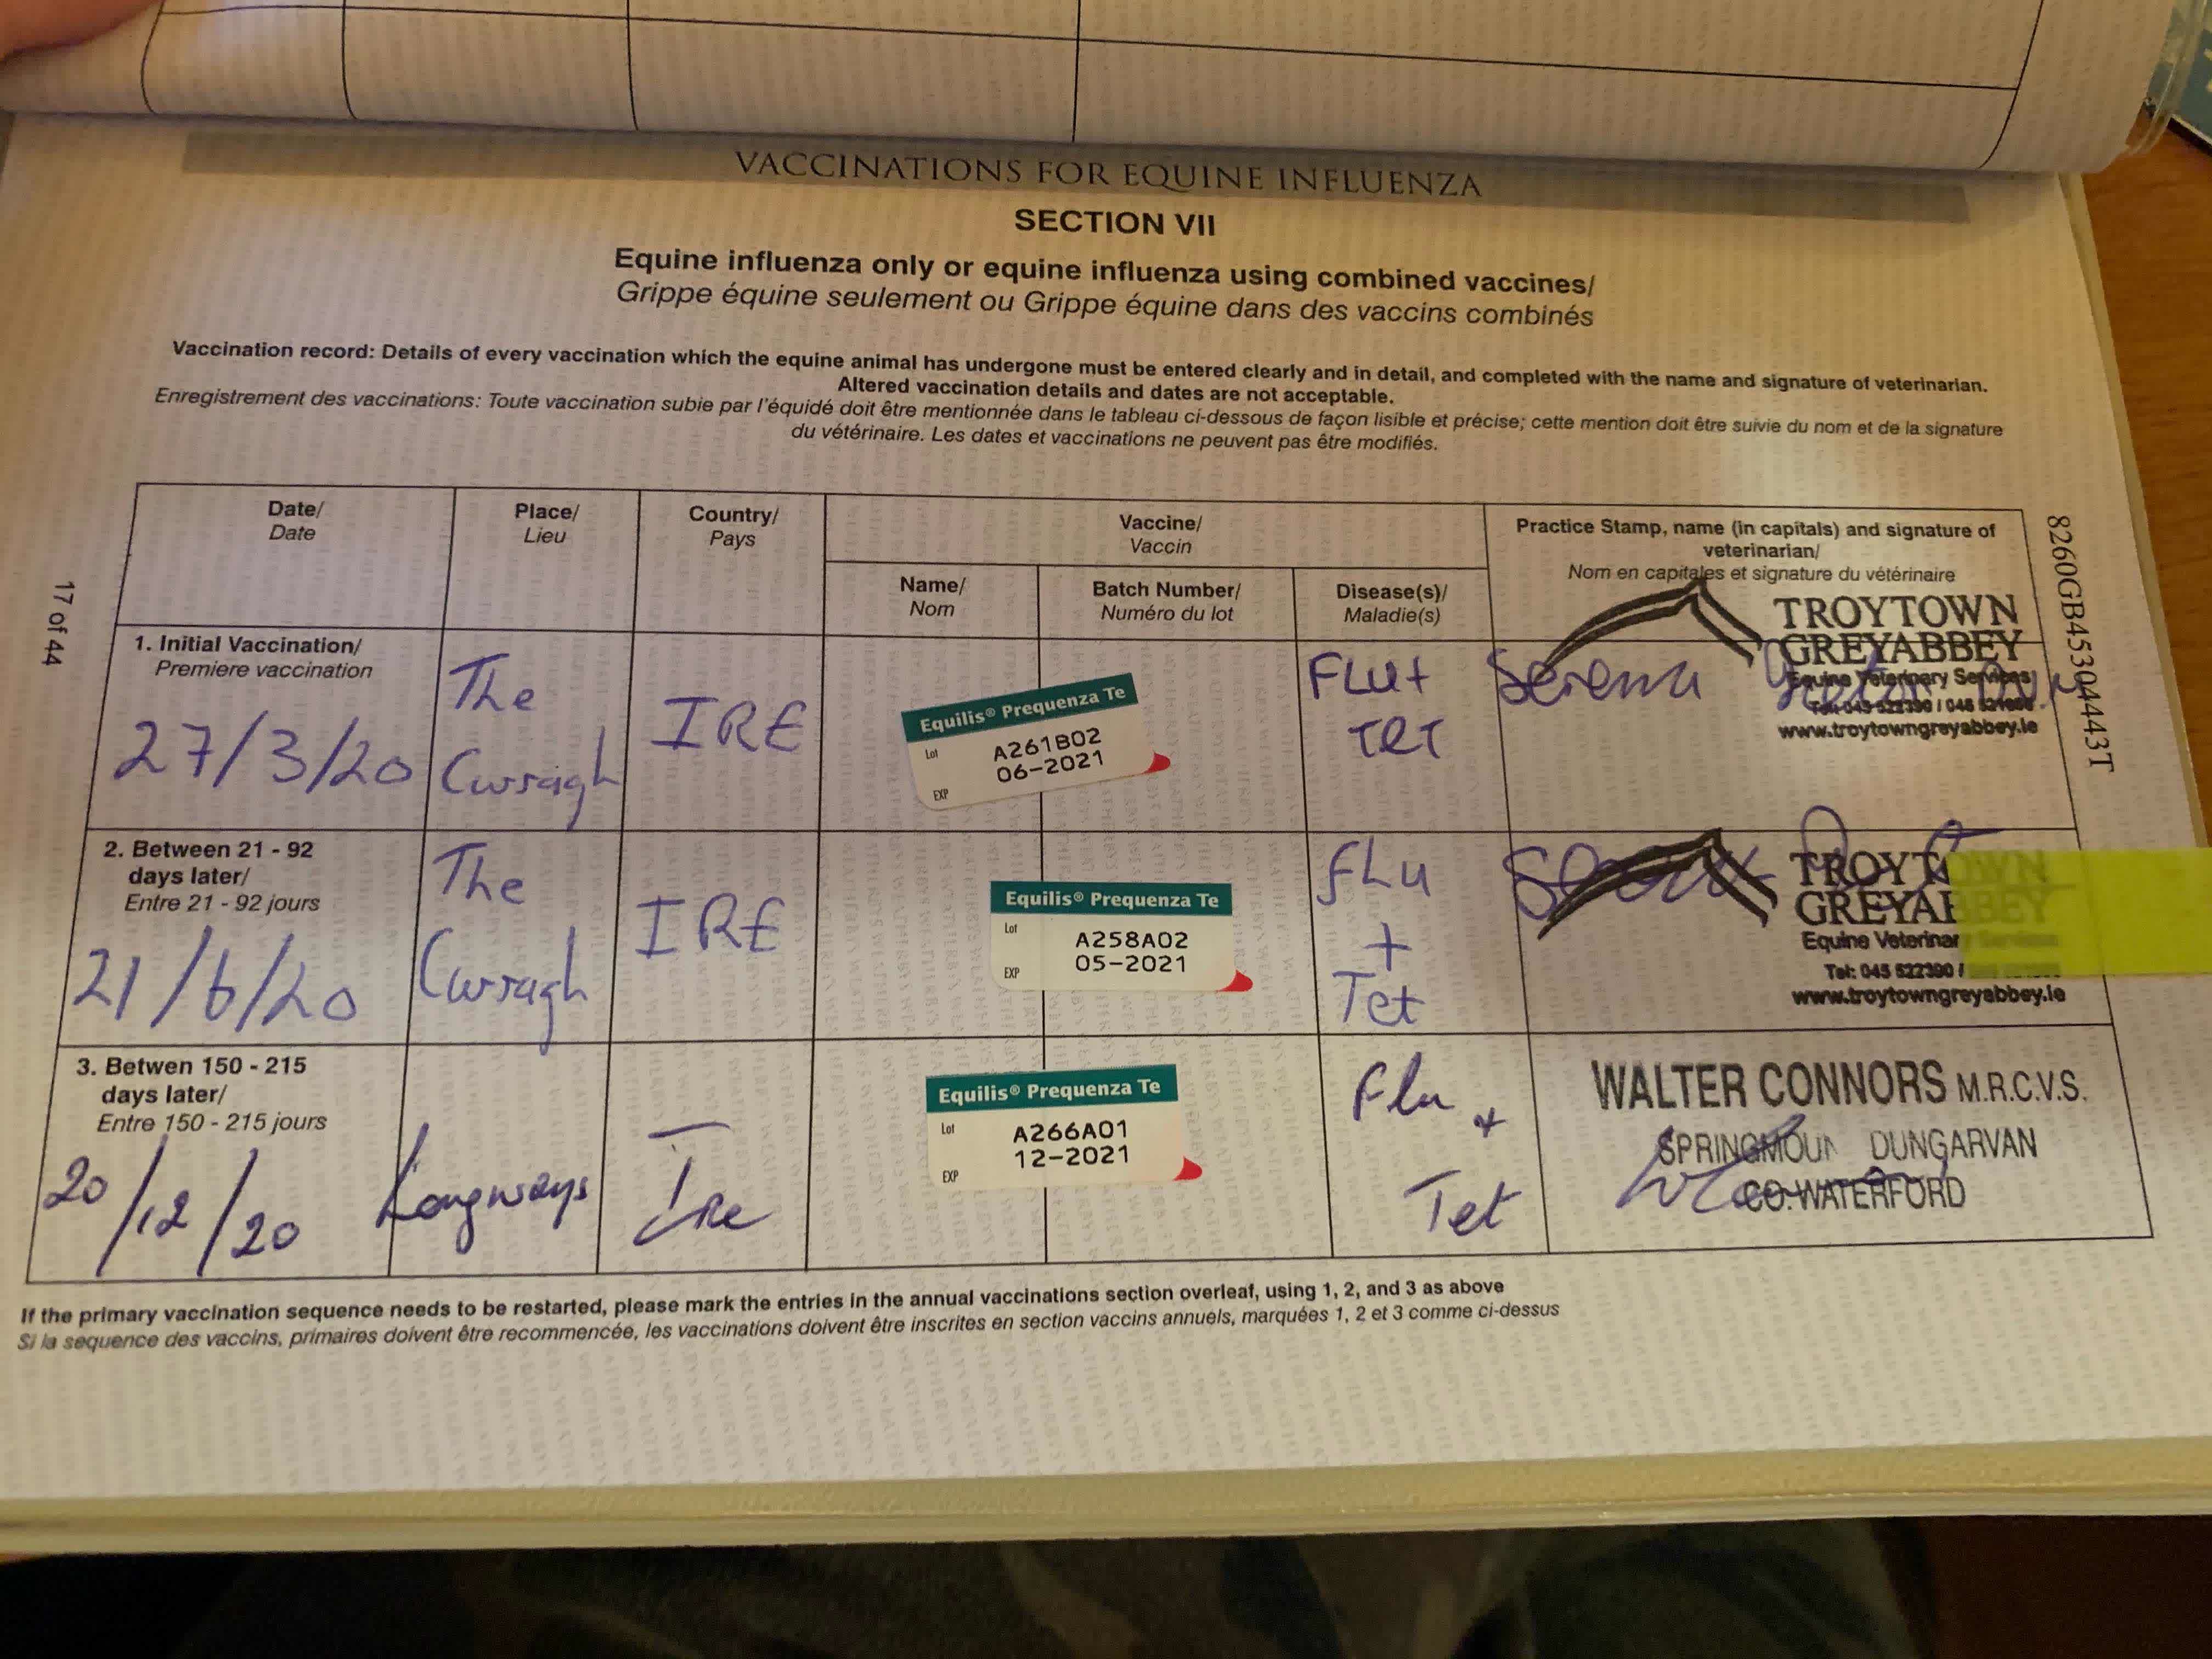 VACCINATIONS FOR EQUINE INFLUENZA
SECTION VII
Equine influenza only or equine influenza using combined vaccines/
Grippe équine seulement ou Grippe équine dans des vaccins combinés
Vaccination record: Details of every vaccination which the equine animal has undergone must be entered clearly and in detail, and completed with the name and signature of veterinarian.
Altered vaccination details and dates are not acceptable.
Enregistrement des vaccinations: Toute vaccination subie par l'équidé doit être mentionnée dans le tableau ci-dessous de façon lisible et précise; cette mention doit être suivie du nom et de la signature
du vétérinaire. Les dates et vaccinations ne peuvent pas être modifiés.
Date/
Date
Place/
Lieu
Country/
Pays
Vaccine/
Vaccin
Name/
Nom
Batch Number/
Numéro du lot
Disease(s)/
Maladie(s)
Practice Stamp, name (in capitals) and signature of
veterinarian/
Nom en capitales et signature du vétérinaire
1. Initial Vaccination/
Premiere vaccination
27/3/20
The
Curragh
IRE
Equilis® Prequenza Te
Lot
A261B02
06-2021
EXP
FLU+
TET
Serena
TROYTOWN
GREYABBEY
Equine Veterinary Services
www.troytowngreyabbey.ie
2. Between 21 - 92
days later/
Entre 21 - 92 jours
21/6/20
The
Curragh
IRE
Equilis® Prequenza Te
Lot
A258A02
05-2021
EXP
FLU
+
Tet
TROYTOWN
GREYABBEY
Equine Veterinary Services
Tel: 045 522390 /
www.troytowngreyabbey.ie
3. Betwen 150 - 215
days later/
Entre 150 - 215 jours
20/12/20
Longways
Ire
Equilis® Prequenza Te
Lot
A266A01
12-2021
EXP
Flu +
Tet
WALTER CONNORS M.R.C.V.S.
DUNGARVAN
CO. WATERFORD
If the primary vaccination sequence needs to be restarted, please mark the entries in the annual vaccinations section overleaf, using 1, 2, and 3 as above
Si la sequence des vaccins, primaires doivent être recommencée, les vaccinations doivent être inscrites en section vaccins annuels, marquées 1, 2 et 3 comme ci-dessus
17 of 44
8260GB45304443T